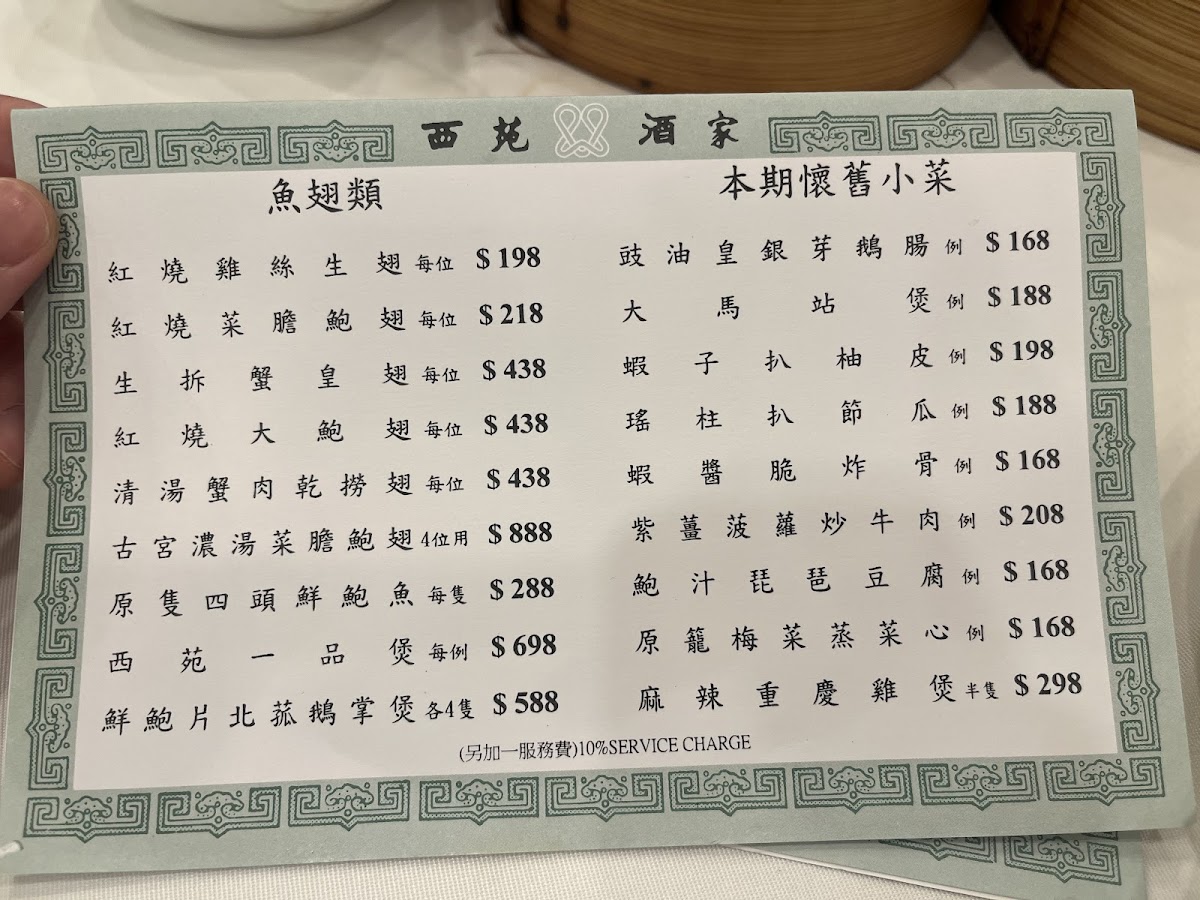 西苑酒家
魚翅類
紅燒雞絲生翅 每位 $198
紅燒菜膽鮑翅 每位 $218
生拆蟹皇翅 每位 $438
紅燒大鮑翅 每位 $438
清湯蟹肉乾撈翅 每位 $438
古宮濃湯菜膽鮑翅 4位用 $888
原隻四頭鮮鮑魚 每隻 $288
西苑一品煲 每例 $698
鮮鮑片北菰鵝掌煲 各4隻 $588
本期懷舊小菜
豉油皇銀芽鵝腸 例 $168
大馬站煲 例 $188
蝦子扒柚皮 例 $198
瑤柱扒節瓜 例 $188
蝦醬脆炸骨 例 $168
紫薑菠蘿炒牛肉 例 $208
鮑汁琵琶豆腐 例 $168
原籠梅菜蒸菜心 例 $168
麻辣重慶雞煲 半隻 $298
(另加一服務費)10%SERVICE CHARGE